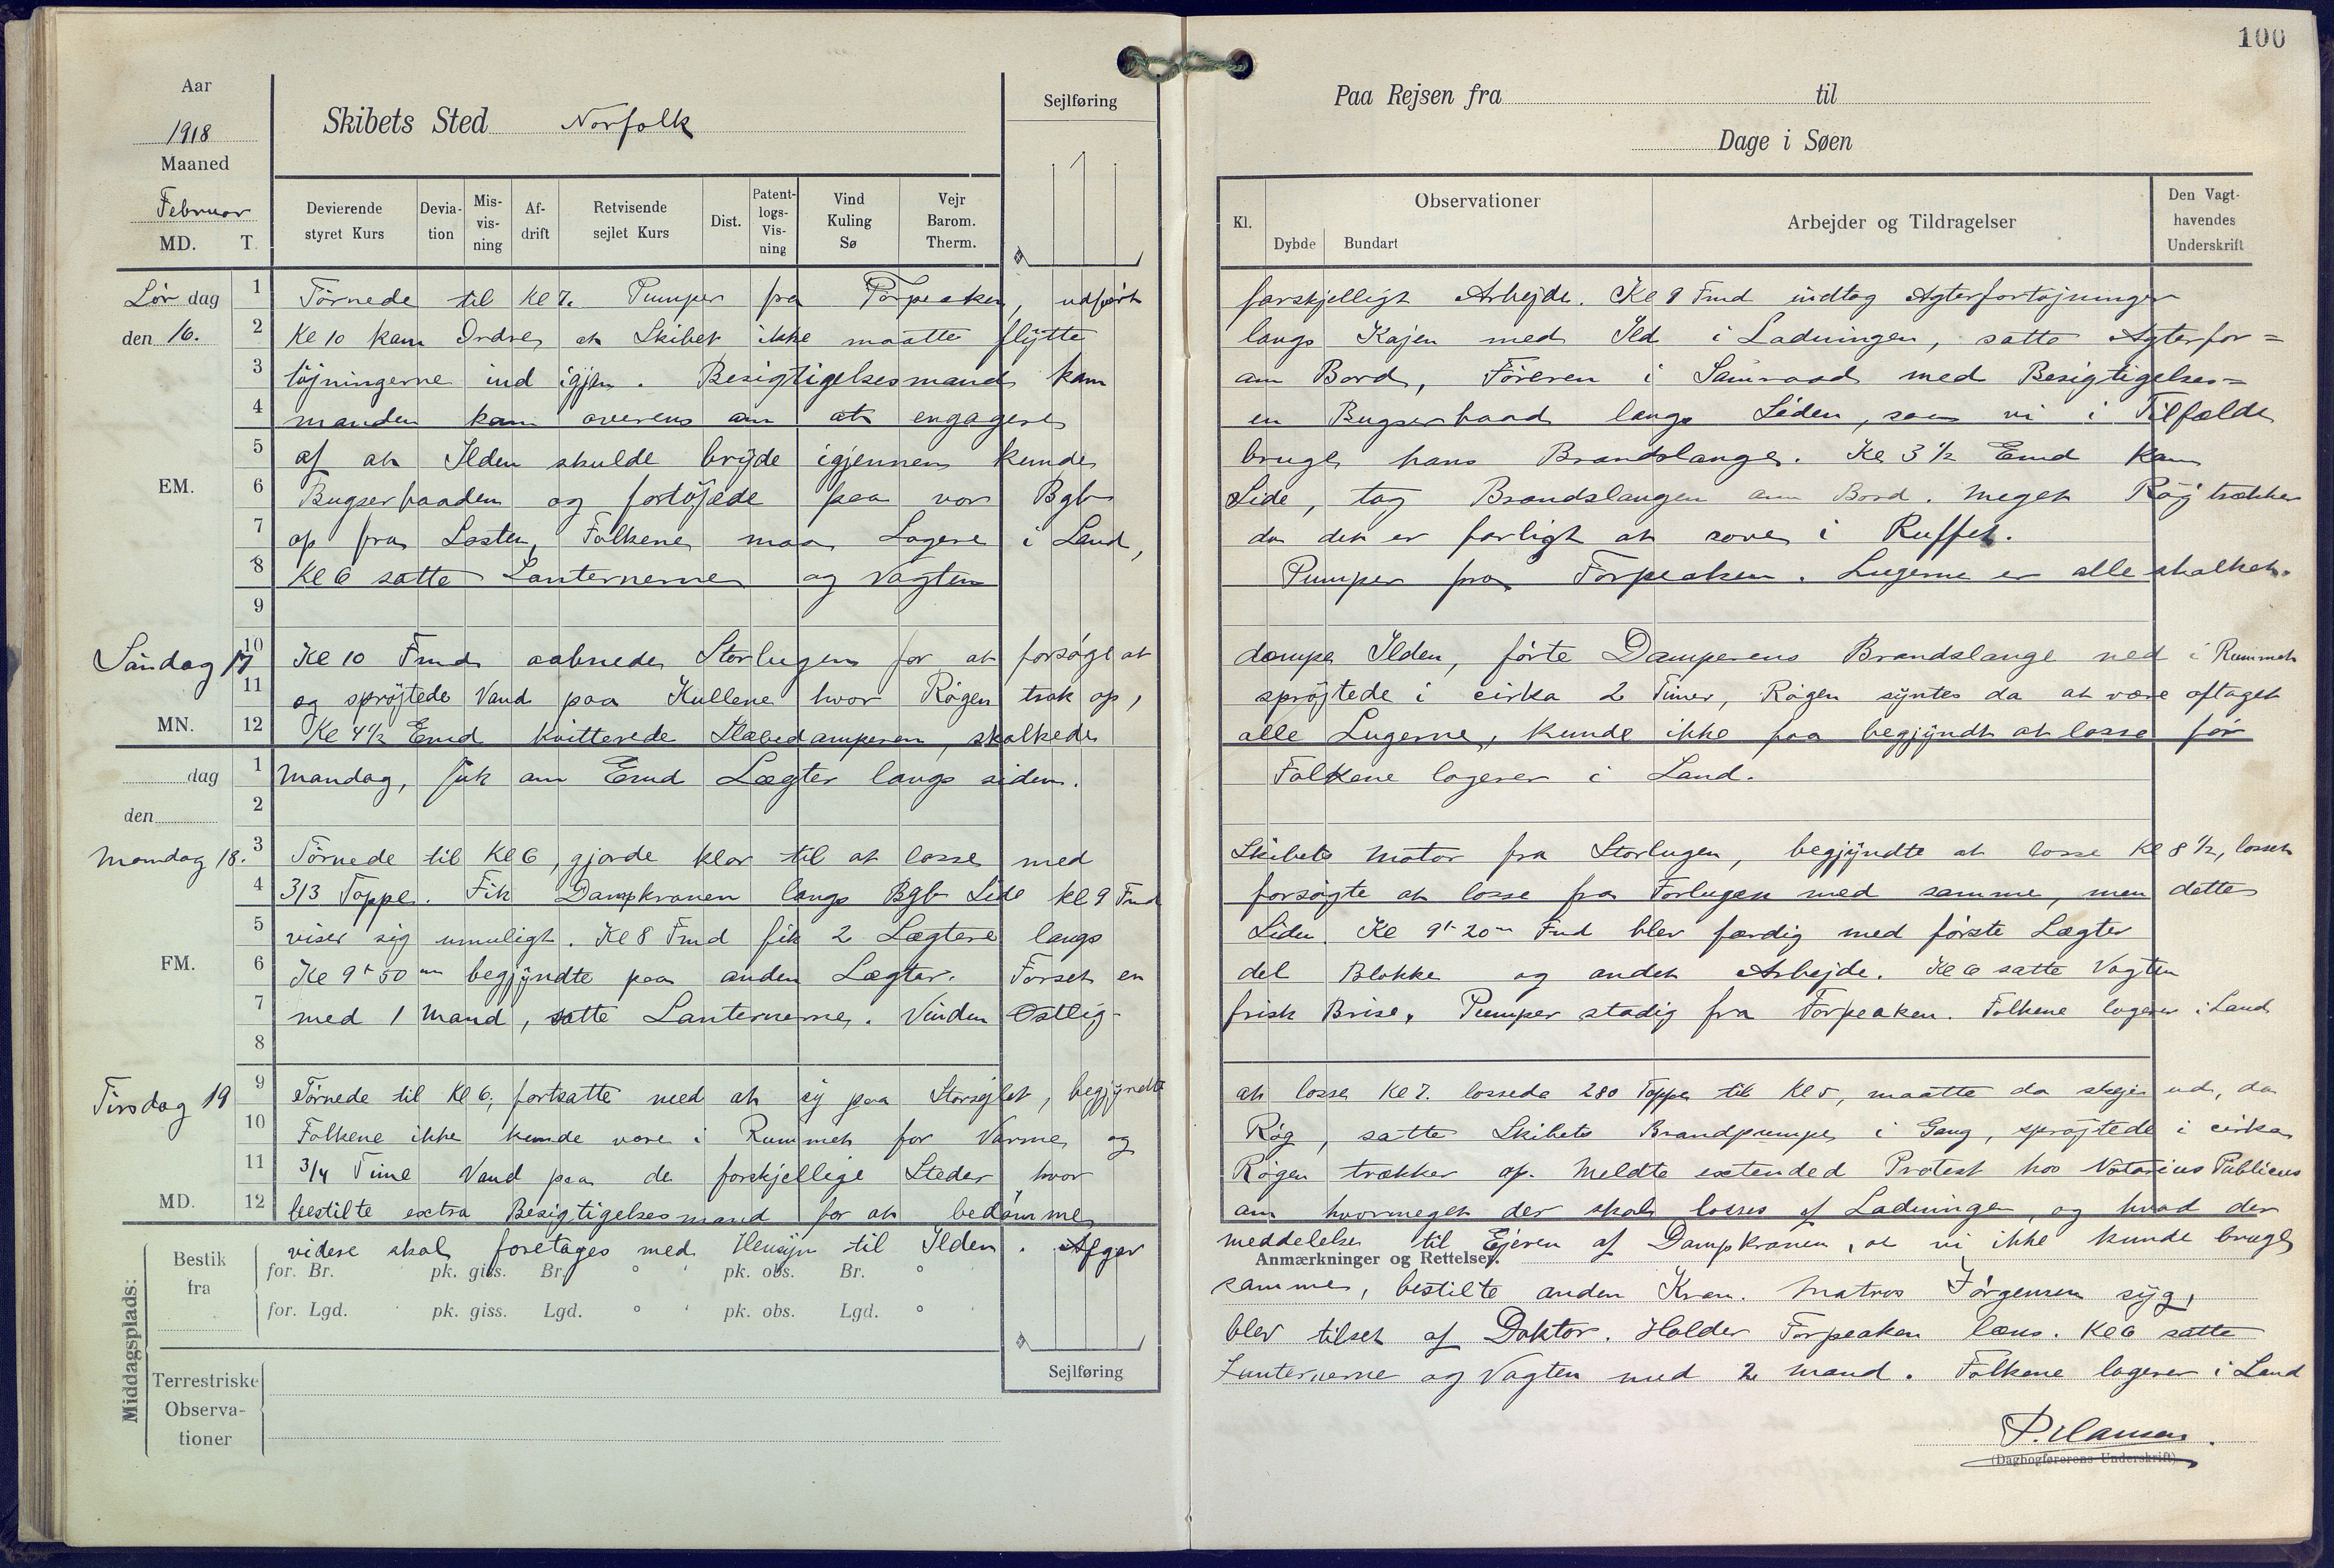 100
Aar
1918
Maaned
Februar
MD. T.
Skibets Sted Norfolk
Sejlføring
Paa Rejsen fra til
Dage i Søen
Devierende styret Kurs
Devia-tion
Mis-vis-ning
Af-drift
Retvisende sejlet Kurs
Dist.
Patent-logs-Vis-ning
Vind Kuling Sø
Vejr Barom. Therm.
Kl.
Observationer
Dybde Bundart
Arbejder og Tildragelser
Den Vagt-havendes Underskrift
Lör dag den 16.
1 Törnede til Kl 7. Pumper fra Forpeaken, udført forskjelligt Arbejde. Kl 9 Fmd indtog Agterfortøjninger
2 Kl 10 kom Ordre at Skibet ikke maatte flytte langs Kajen med Ild i Ladningen, satte Agterfor=
3 töjningerne ind igjen. Besigtigelsesmand kom om Bord, Föreren i Samraad med Besigtigelses=
4 manden kom overens om at engagere en Bugserbaad langs Siden, som vi i Tilfælde
5 af at Ilden skulde bryde igjennem kunde bruge hans Brandslange. Kl 3 1/2 Emd kom
EM. 6 Bugserbaaden og fortöjede paa vor Bgb Side, tog Brandslangen om Bord. Meget Røg trækker
7 op fra Lasten, Folkene maa Logere i Land, da det er farligt at sove i Ruffet.
8 Kl 6 satte Lanternerne og Vagten Pumper fra Forpeaken. Lugerne er alle skalket.
9
Söndag 17
10 Kl 10 Fmd aabnede Storlugen for at forsøge at dæmpe Ilden, förte Damperens Brandslange ned i Rummet
11 og spröjtede Vand paa Kullene hvor Rögen trak op, spröjtede i cirka 2 Timer, Rögen syntes da at være aftaget
MN. 12 Kl 4 1/2 Emd kvitterede Slæbedamperen, skalkede alle Lugerne, kunde ikke faa begyndt at losse för
dag 1 Mandag, fik om Emd Lægter langs siden. Folkene logerer i Land.
den 2
Mandag 18.
3 Törnede til Kl 6, gjorde klar til at losse med Skibets Motor fra Storlugen, begjyndte at losse Kl 8 1/2, losset
4 313 Toppe. Fik Dampkranen langs Bgb Side kl 9 Fmd forsögte at losse fra Forlugen med samme, men dette
5 viser sig umuligt. Kl 8 Fmd fik 2 Lægtere langs Siden. Kl 9t 20m Fmd blev færdig med förste Lægter
FM. 6 Kl 9t 50m begjyndte paa anden Lægter. Forset en del Blokke og andet Arbejde. Kl 6 satte Vagten
7 med 1 Mand, satte Lanternerne. Vinden Østlig frisk Brise. Pumper stadig fra Forpeaken. Folkene logerer i Land
8
Tirsdag 19
9 Törnede til Kl 6, fortsatte med at sy paa Storsejlet, begjyndte at losse Kl 7. lossede 280 Toppe til Kl 5, maatte da skeje ud, da
10 Folkene ikke kunde være i Rummet for Varme og Røg, satte Skibets Brandpumpe i Gang, spröjtede i cirka
11 3/4 Time Vand paa de forskjellige Steder hvor Rögen trækker op. Meldte extended Protest hos Notarius Publicus
MD. 12 bestilte extra Besigtigelsesmand for at bedömme om hvormeget der skal losses af Ladningen, og hvad der
videre skal foretages med Hensyn til Ilden. Afgav meddelelse til Ejeren af Dampkranen, at vi ikke kunde bruge
samme, bestilte anden Kran. Matros Jörgensen syg,
blev tilset af Doktor. Holder Forpeaken læns. Kl 6 satte
Lanternerne og Vagten med 2 Mand. Folkene logerer i Land
Middagsplads:
Bestik fra
for. Br. ° ' pk. giss. Br. ° ' pk. obs. Br. °
for. Lgd. ' pk. giss. Lgd. ° ' pk. obs. Lgd. °
Terrestriske Observa-tioner
Sejlføring
Anmærkninger og Rettelser.
P. Hansen.
(Dagbogførerens Underskrift)